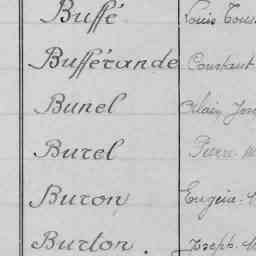 Buffé Louis
Bufférande Constant
Bunel Alain
Burel Pierre
Buron Eugène
Burton. Joseph